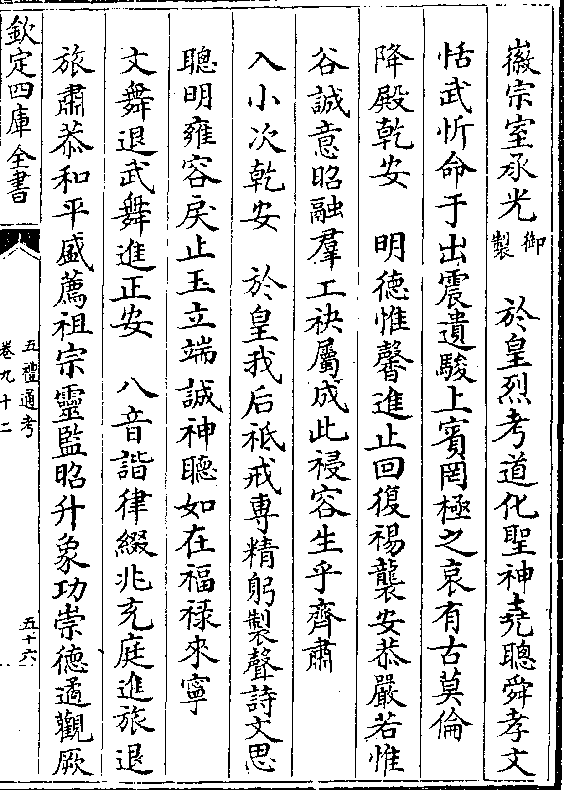 徽宗室承光御製　於皇烈考道化聖神堯聰舜孝文
恬武忻命于出震遺駿上賓罔極之哀有古莫倫
降殿乾安　明德惟馨進止回復裼襲安恭嚴若惟
谷誠意昭融羣工袂屬成此祲容生乎齊肅
入小次乾安　於皇我后祗戒專精躬製聲詩文思
聰明雍容戾止玉立端誠神聽如在福祿來寧
文舞退武舞進正安　八音諧律綴兆充庭進旅退
旅肅恭和平盛薦祖宗靈監昭升象功崇德遹觀厥
欽定四庫全書
五禮通考
卷九十二
五十六